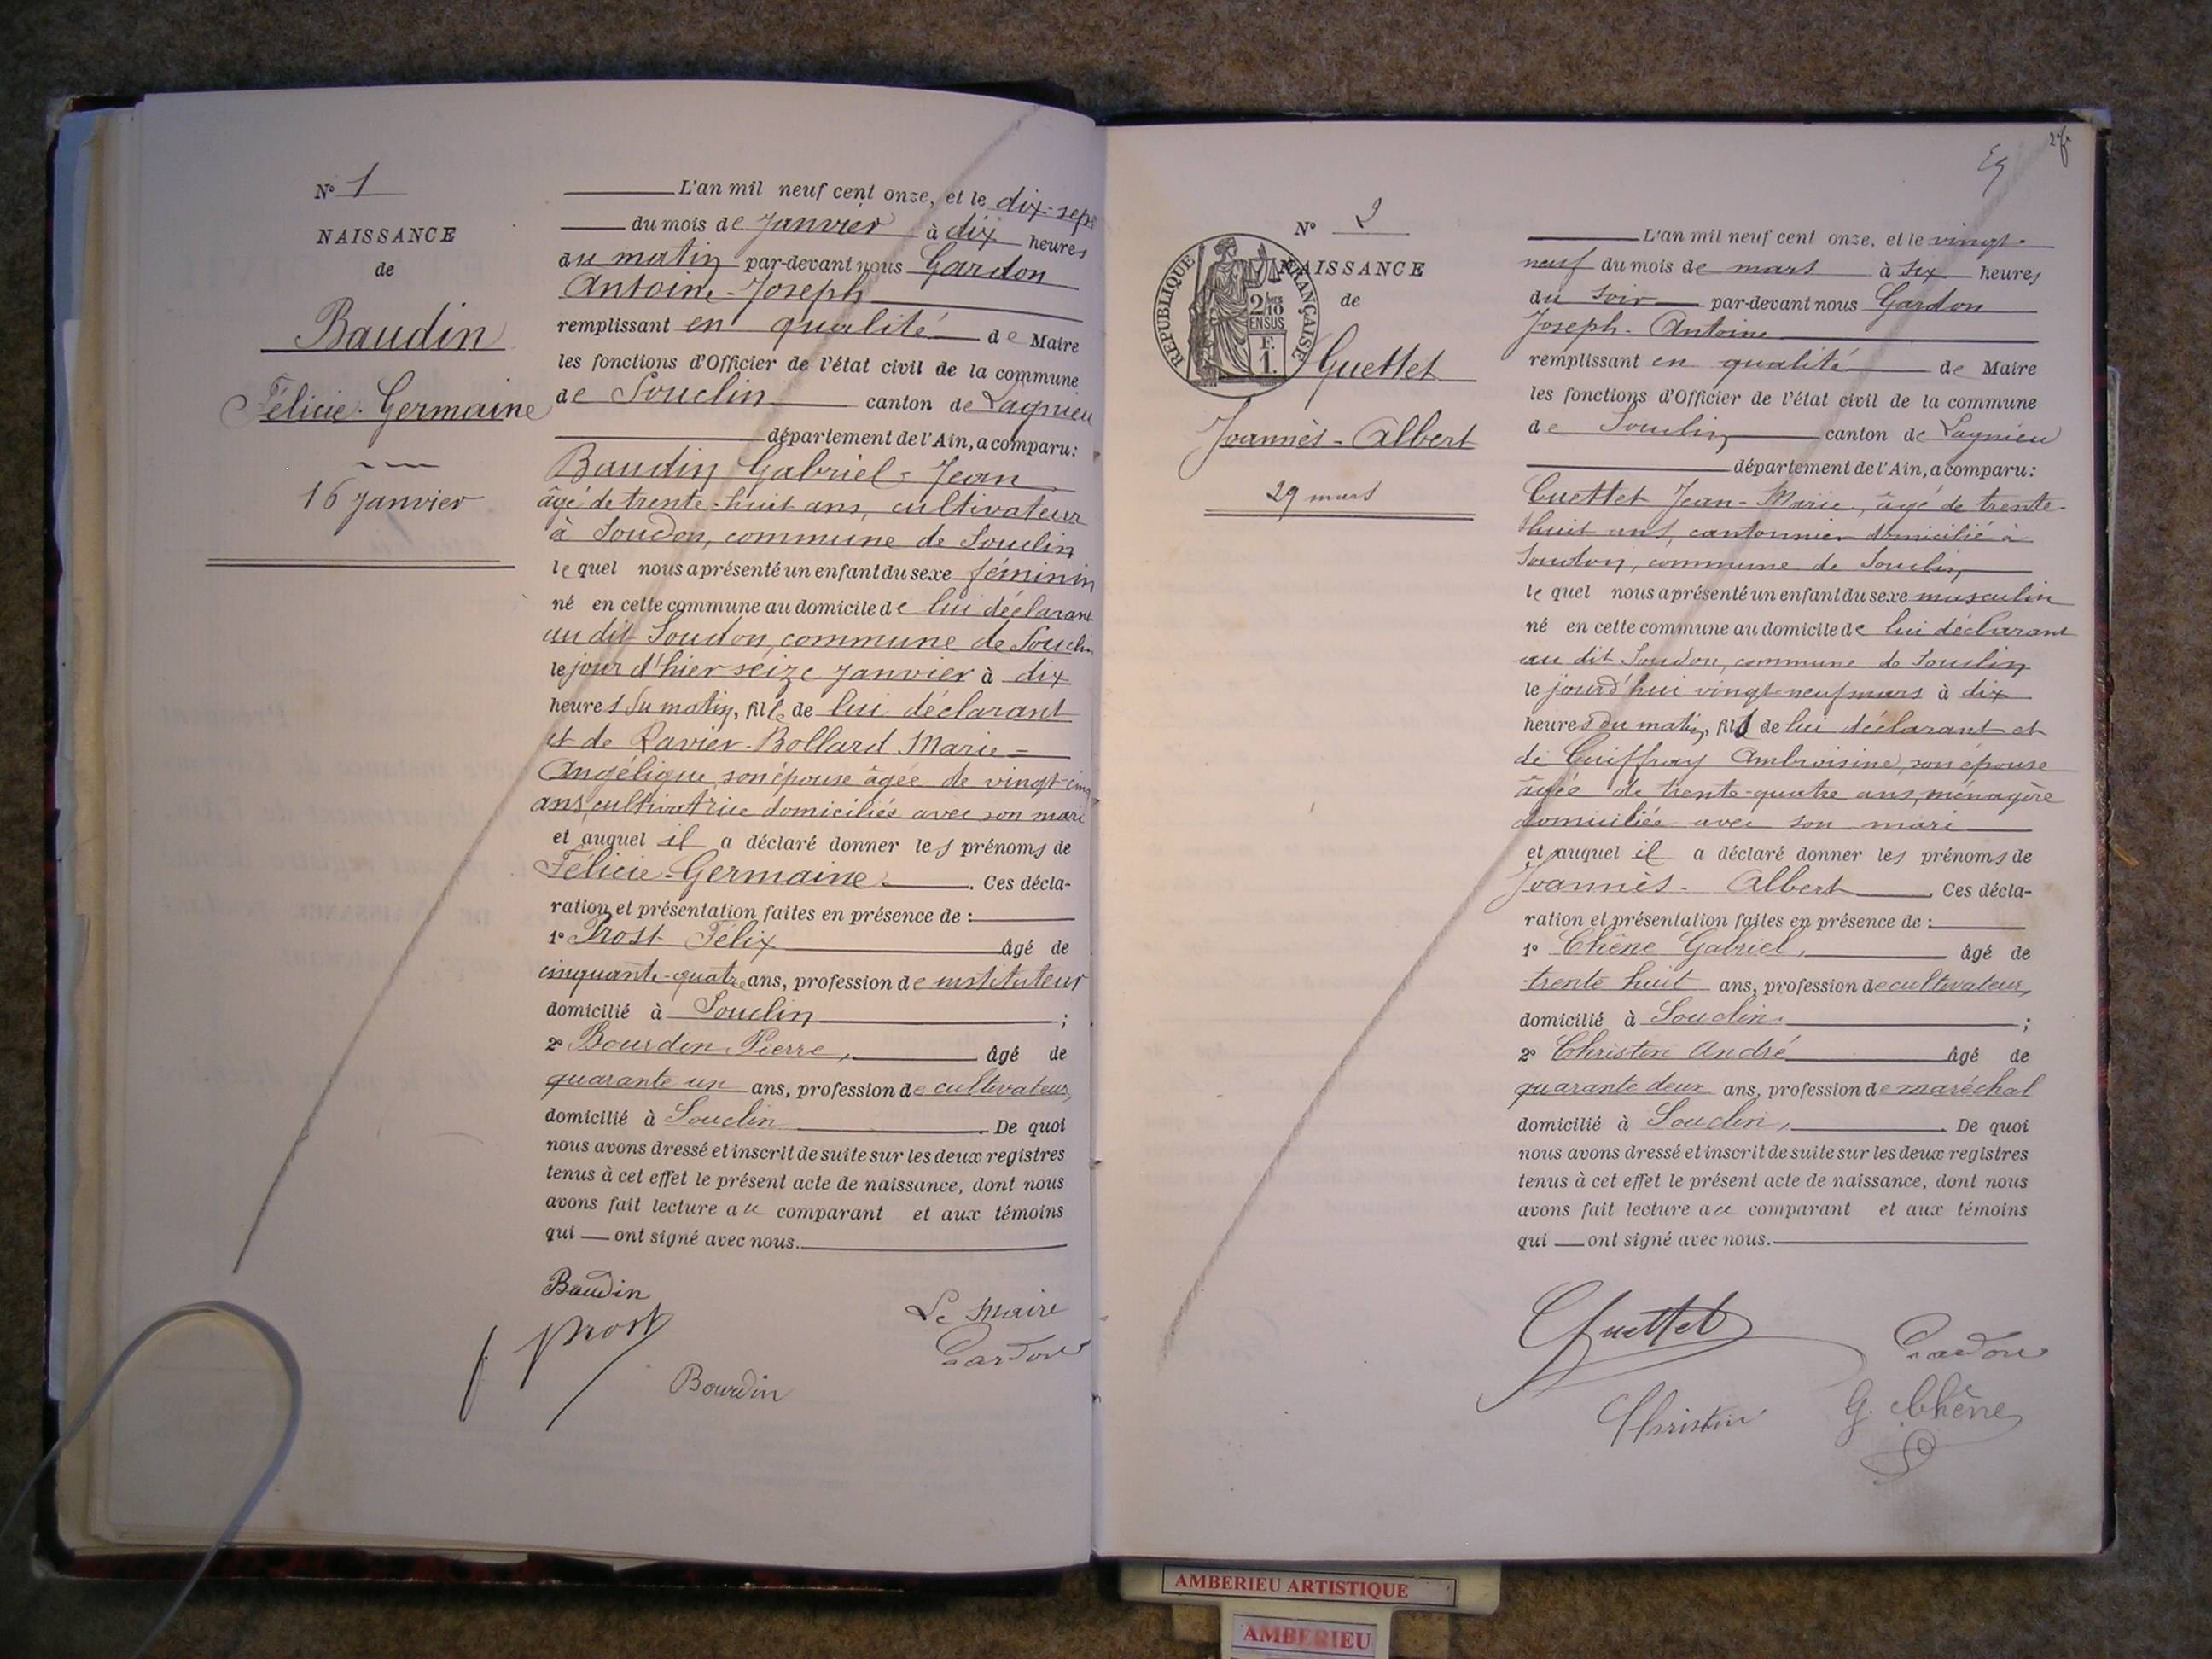 N° 1
NAISSANCE
de
Baudin
Félicie-Germaine
16 Janvier
L'an mil neuf cent onze, et le dix-sept
du mois de Janvier à dix heures
du matin par-devant nous Gardon
Antoine-Joseph
remplissant en qualité de Maire
les fonctions d'Officier de l'état civil de la commune
de Souclin canton de Lagnieu
département de l'Ain, a comparu:
Baudin Gabriel-Jean
âgé de trente-huit ans, cultivateur
à Soudon, commune de Souclin
lequel nous a présenté un enfant du sexe féminin
né en cette commune au domicile de lui déclarant
au dit Soudon, commune de Souclin
le jour d'hier seize Janvier à dix
heures du matin, fille de lui déclarant
et de Ravier-Bollard Marie-
Angélique, son épouse âgée de vingt-cinq
ans, cultivatrice domiciliés avec son mari
et auquel il a déclaré donner les prénoms de
Félicie-Germaine. Ces décla-
ration et présentation faites en présence de :
1° Prost Félix âgé de
cinquante-quatre ans, profession de instituteur
domicilié à Souclin ;
2° Bourdin Pierre, âgé de
quarante un ans, profession de cultivateur,
domicilié à Souclin. De quoi
nous avons dressé et inscrit de suite sur les deux registres
tenus à cet effet le présent acte de naissance, dont nous
avons fait lecture au comparant et aux témoins
qui ont signé avec nous.
Baudin
Le Maire
Prost
Gardon
Bourdin
2
N° 2
NAISSANCE
de
RÉPUBLIQUE FRANÇAISE
2/10
EN SUS
F.
1.
Guettet
Joannès-Albert
29 mars
L'an mil neuf cent onze, et le vingt-
neuf du mois de mars à six heures
du soir par-devant nous Gardon
Joseph-Antoine
remplissant en qualité de Maire
les fonctions d'Officier de l'état civil de la commune
de Souclin canton de Lagnieu
département de l'Ain, a comparu:
Guettet Jean-Marie, âgé de trente-
huit ans, cantonnier domicilié à
Soudon, commune de Souclin
lequel nous a présenté un enfant du sexe masculin
né en cette commune au domicile de lui déclarant
au dit Soudon, commune de Souclin
le jourd'hui vingt-neuf mars à dix
heures du matin, fils de lui déclarant et
de Guiffray Ambroisine, son épouse
âgée de trente-quatre ans, ménagère
domiciliée avec son mari
et auquel il a déclaré donner les prénoms de
Joannès-Albert. Ces décla-
ration et présentation faites en présence de :
1° Chêne Gabriel, âgé de
trente huit ans, profession de cultivateur,
domicilié à Souclin. ;
2° Christin André âgé de
quarante deux ans, profession de maréchal
domicilié à Souclin,. De quoi
nous avons dressé et inscrit de suite sur les deux registres
tenus à cet effet le présent acte de naissance, dont nous
avons fait lecture au comparant et aux témoins
qui ont signé avec nous.
Guettet
Gardon
Christin
G. Chêne
AMBERIEU ARTISTIQUE
AMBERIEU